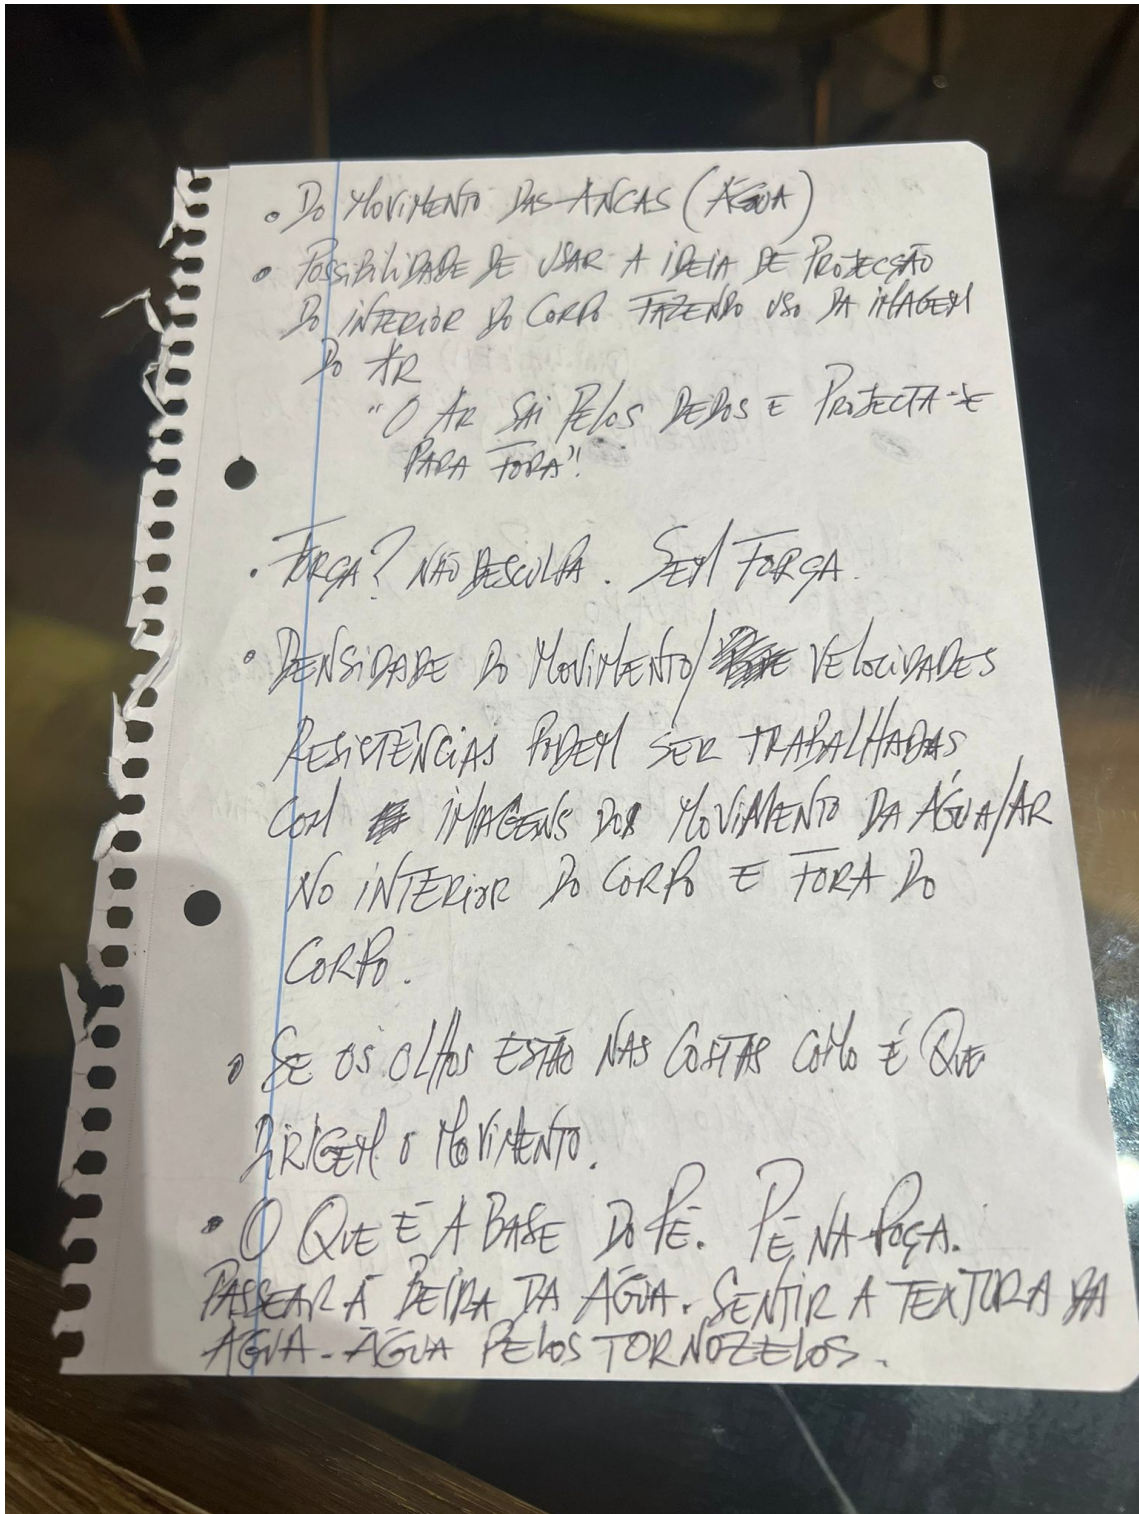 • DO MOVIMENTO DAS ANCAS (ÁGUA)
• POSSIBILIDADE DE USAR A IDEIA DE PROJECÇÃO
DO INTERIOR DO CORPO FAZENDO USO DA IMAGEM
DO AR
"O AR SAI PELOS DEDOS E PROJECTA-SE
PARA FORA"!
• FORÇA? NÃO DESCULPA. SEM FORÇA.
• DENSIDADE DO MOVIMENTO/ VELOCIDADES
RESISTÊNCIAS PODEM SER TRABALHADAS
COM IMAGENS DO MOVIMENTO DA ÁGUA/AR
NO INTERIOR DO CORPO E FORA DO
CORPO.
• SE OS OLHOS ESTÃO NAS COSTAS COMO É QUE
DIRIGEM O MOVIMENTO.
• O QUE É A BASE DO PÉ. PÉ NA POÇA.
PASSEAR À BEIRA DA ÁGUA. SENTIR A TEXTURA DA
ÁGUA. ÁGUA PELOS TORNOZELOS.